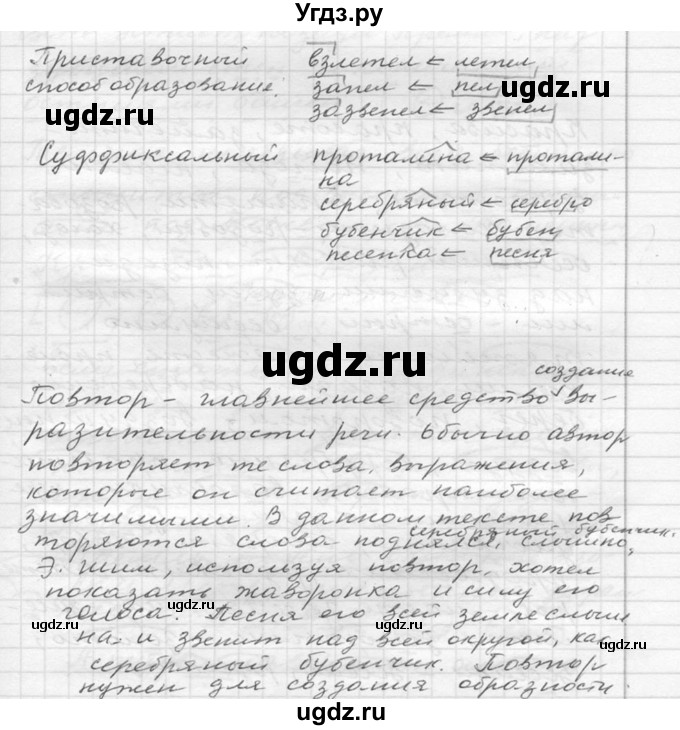 Угдз.ру
Приставочный взлетел ← летел
способ образования. запел ← пел
ugdz.ru ugdz.ru
зазвенел ← звенел
Суффиксальный проталина ← протали-
на
серебряный ← серебро
бубенчик ← бубен
песенка ← песня
ugdz.ru
создание
Повтор – главнейшее средство вы-
разительности речи. Обычно автор
повторяет те слова, выражения,
которые он считает наиболее
значимыми. В данном тексте пов
серебряный бубенчик.
торяются слова поднялся, слышно,
Э. Шим, используя повтор, хотел
показать жаворонка и силу его
голоса. Песня его всей земле слыш
на и звенит над всей округой, как
серебряный бубенчик. Повтор
нужен для создания образности.
ugdz.ru ugdz.ru
ugdz.ru
ugdz.ru